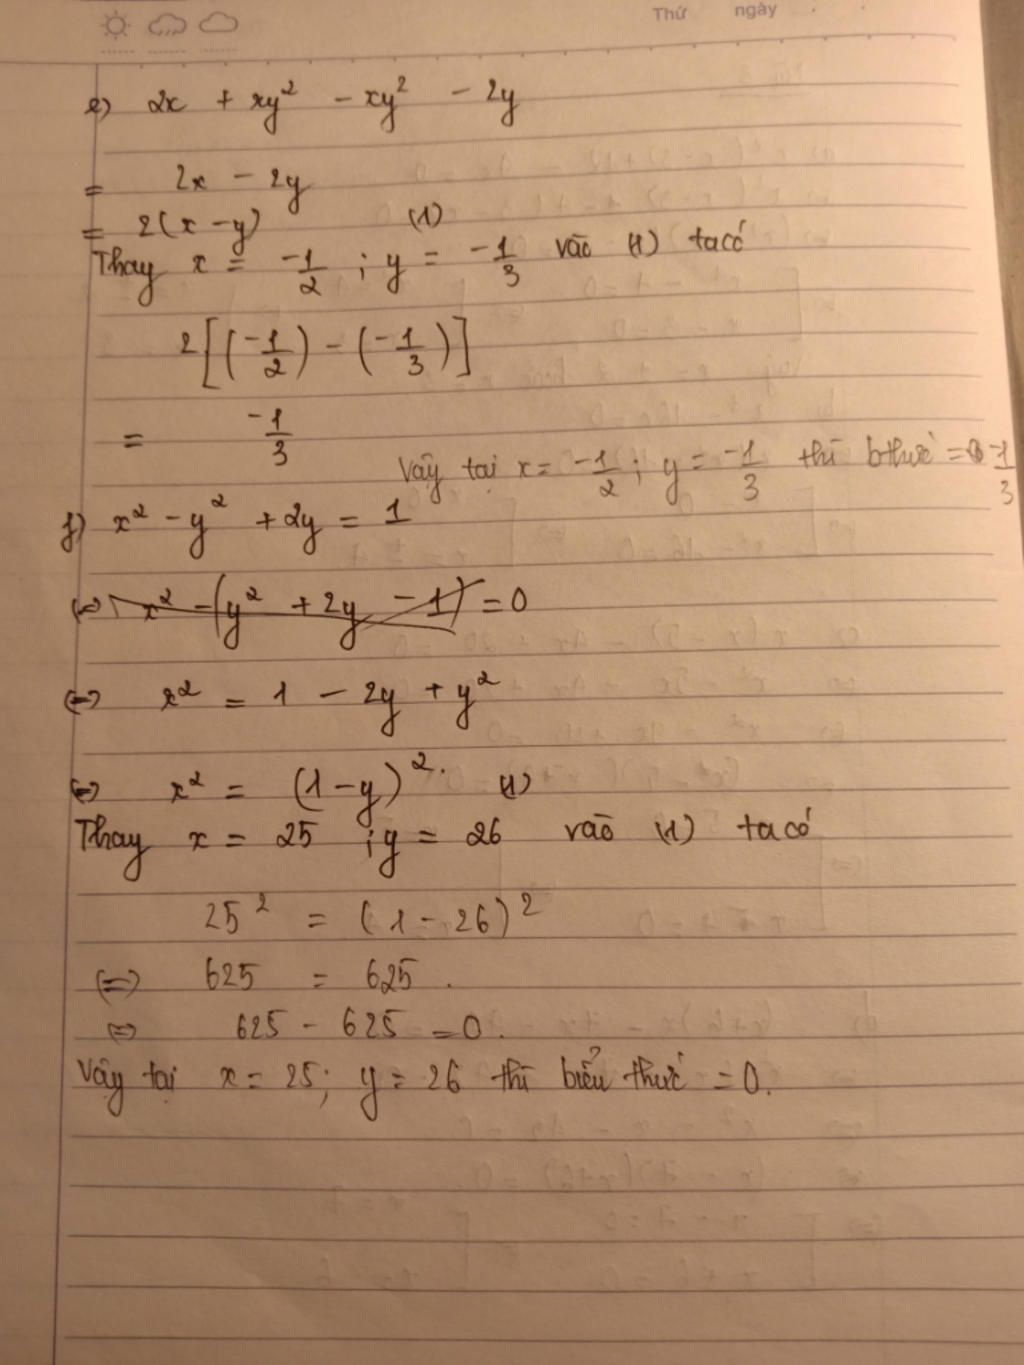 Thứ ngày
e) 2x + xy² - xy² - 2y
= 2x - 2y
= 2(x - y) (1)
Thay x = -1/2 ; y = -1/3 vào (1) ta có
2[(-1/2) - (-1/3)]
= -1/3
Vậy tại x = -1/2 ; y = -1/3 thì bthức = -1/3
f) x² - y² + 2y = 1
(=) x² - (y² + 2y - 1) = 0
(=) x² = 1 - 2y + y²
(=) x² = (1 - y)². (1)
Thay x = 25 ; y = 26 vào (1) ta có
25² = (1 - 26)²
(=) 625 = 625.
(=) 625 - 625 = 0.
Vậy tại x = 25; y = 26 thì biểu thức = 0.